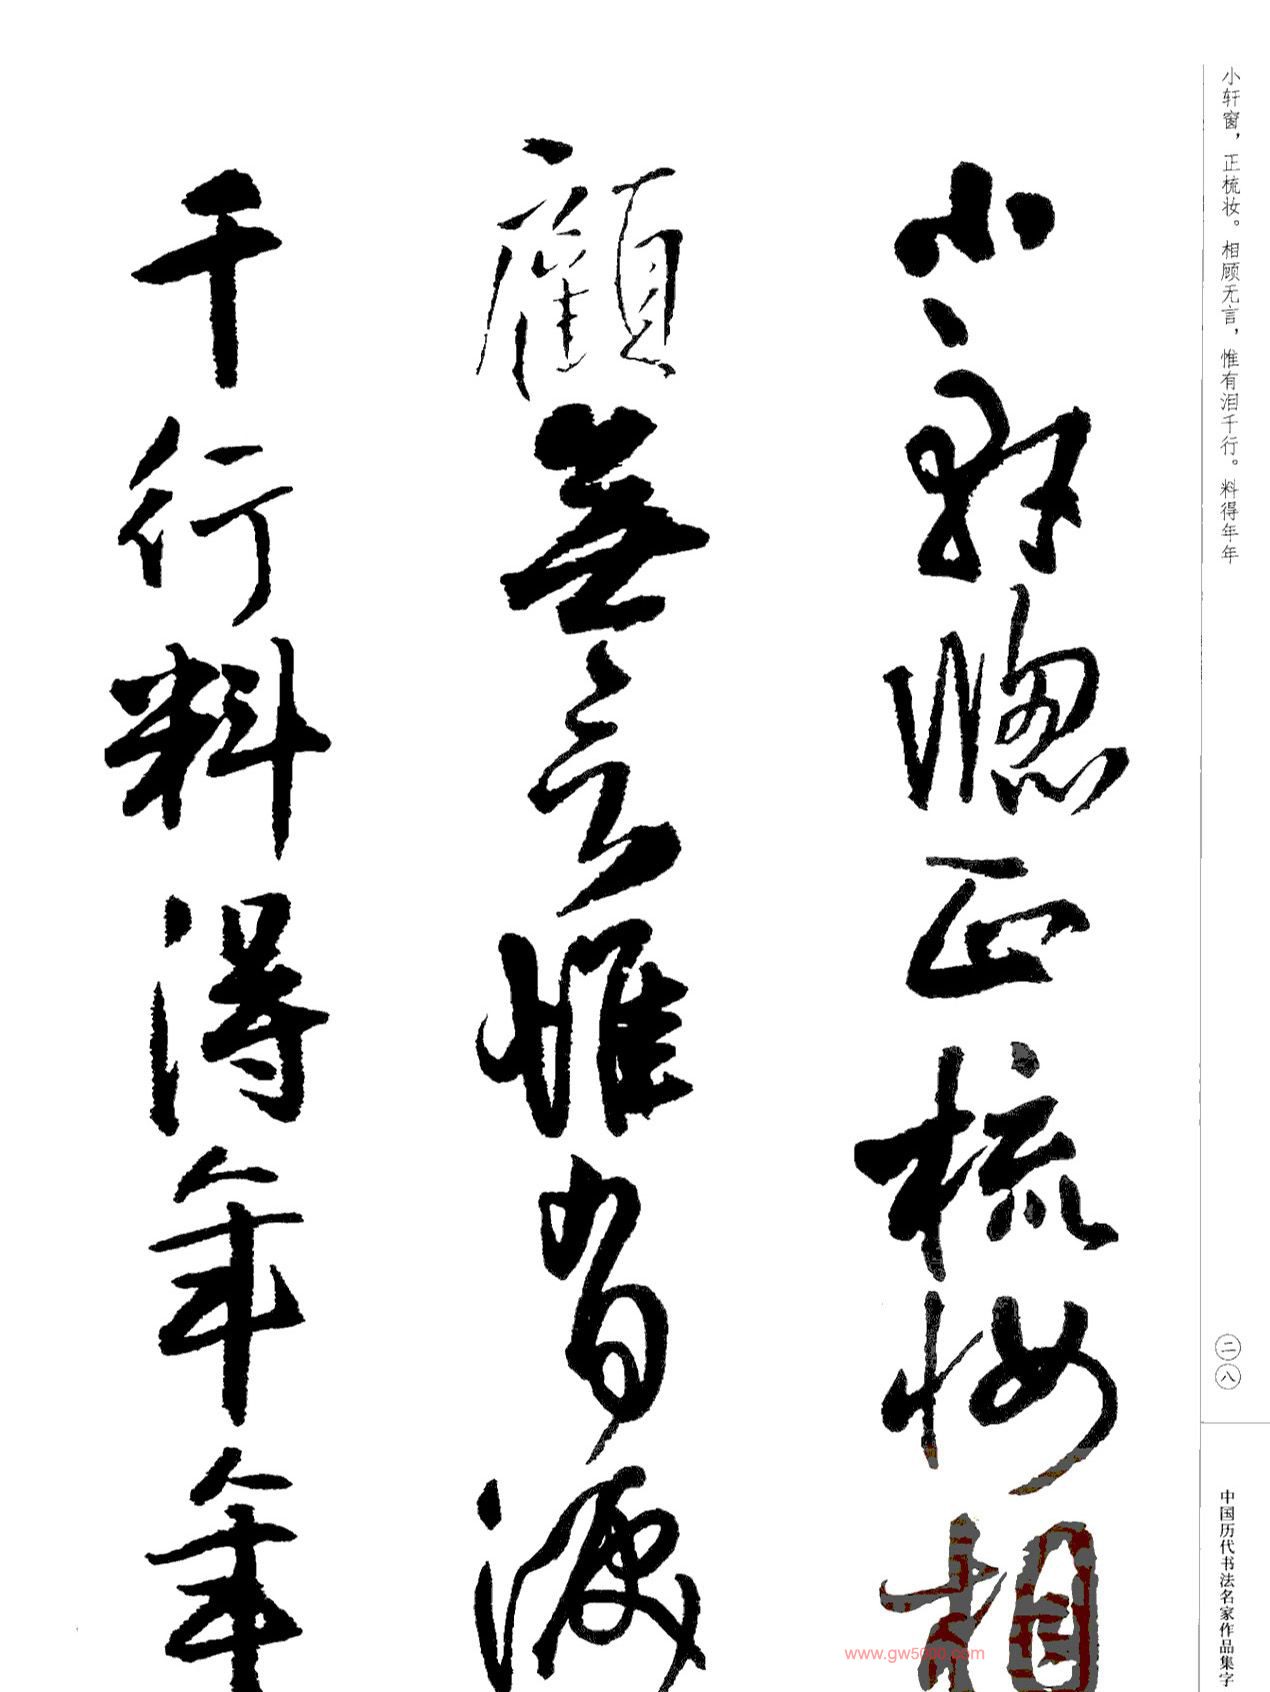 小轩窗，正梳妆。相顾无言，惟有泪千行。料得年年
二八
中国历代书法名家作品集字
小軒窗正梳妝相
顧無言惟有淚
千行料得年年
www.gw5000.com